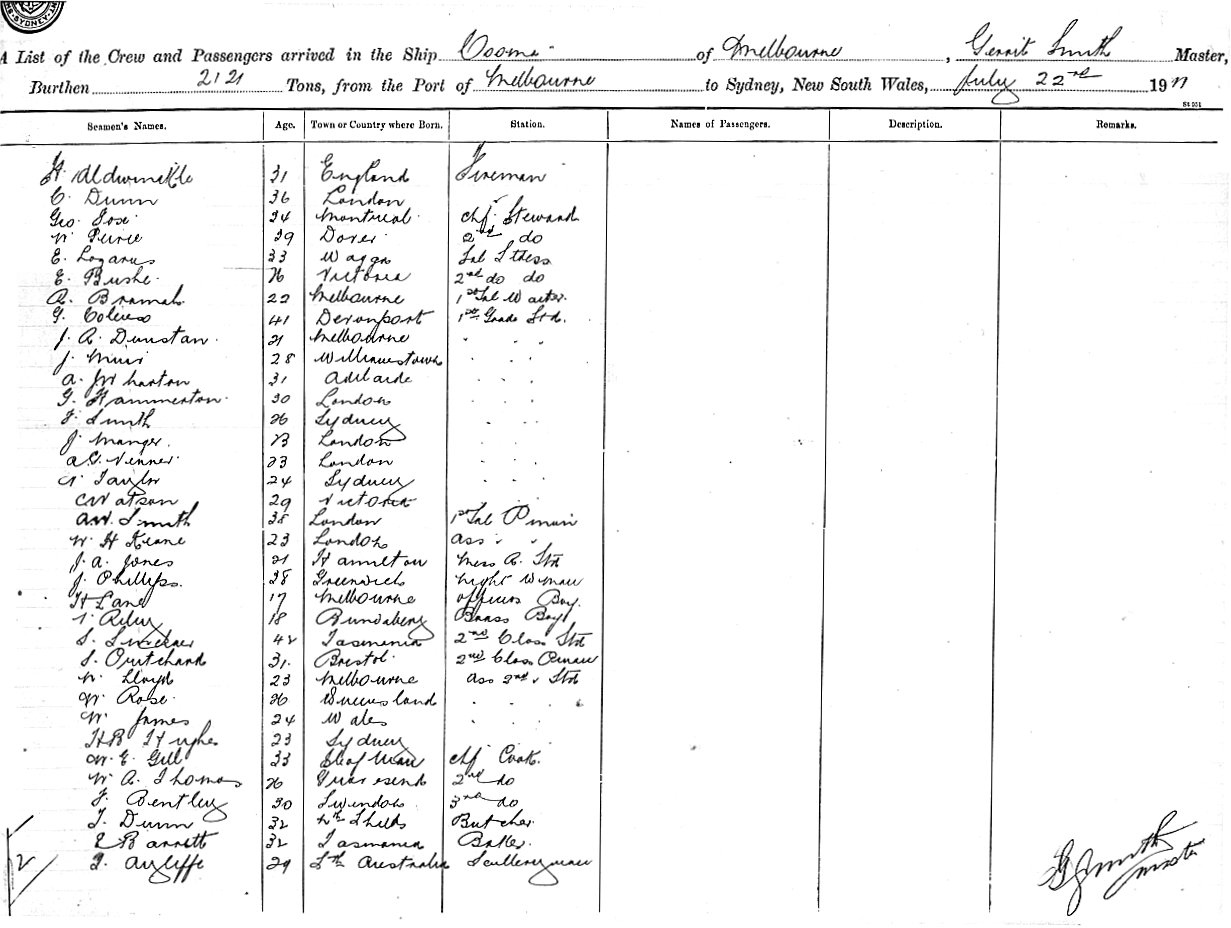 SYDNEY
A List of the Crew and Passengers arrived in the Ship Cooma of Melbourne, Gerrit Smith Master,
Burthen 2121 Tons, from the Port of Melbourne to Sydney, New South Wales, July 22nd 19
St 251
Seamen's Names. Age. Town or Country where Born. Station. Names of Passengers. Description. Remarks.
H Aldwinckle 31 England Fireman
C. Dunn 36 London "
Geo. 34 Montreal Chf. Steward
W 39 Dover 2nd do
E. Lazarus 33 Wagga Sal Stdess
E. Bushe 26 Victoria 2nd do do
A. Bramah 22 Melbourne 1st Sal Waiter.
G. 41 Devonport 1st Grade Std.
J. A. Dunstan 21 Melbourne " " "
J. Muir 28 Williamstown " " "
A. Wharton 31 Adelaide " " "
G. Hammerton 30 London " " "
F. Smith 26 Sydney " " "
J. Manger. 23 London " " "
A. G. Venner 23 London " " "
Taylor 24 Sydney " " "
C Watson 29 Victoria
A.W. Smith 38 London 1st Sal P man
W. H Keane 23 London Ass " "
J. A. Jones 21 Hamilton Mess R. Std
J. Phillips. 38 Greenwich Night W man
H Lane 17 Melbourne Officers Boy.
T. Riley 18 Bundaberg Brass Boy
S. 42 Tasmania 2nd Class Std
S. Pritchard 31. Bristol 2nd Class P man
W. Lloyd 23 Melbourne Ass 2nd " Std
W. Rose 26 Queensland " " " "
W. James 24 Wales " " "
H B Hughes 23 Sydney
W. E. Gill 33 Isle of Man Chf Cook.
W A. Thomas 26 Gravesend 2nd do
F. Bentley 30 Swindon 3rd do
T. Dunn 32 Nth Shields Butcher
E Barrett 32 Tasmania Baker.
Ayliffe 29 Sth Australia Sculleryman
G Smith
Master